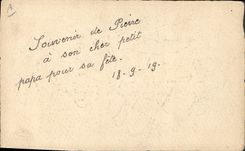 Souvenir de Pierre
à son cher petit
papa pour sa fête.
18-9-19.